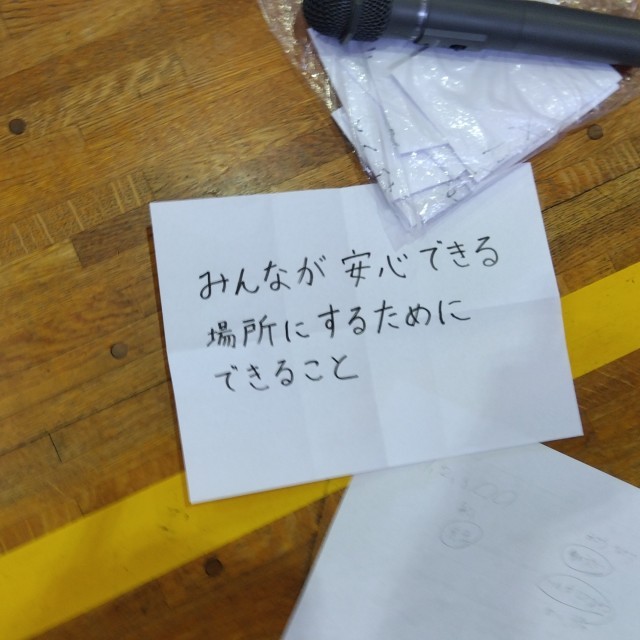 みんなが安心できる
場所にするために
できること